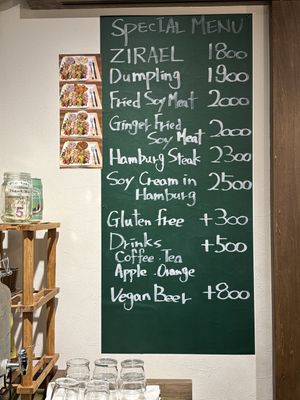 SPECIAL MENU
ZIRAEL 1800
Dumpling 1900
Fried Soy Meat 2000
Ginger Fried
Soy Meat 2000
Hamburg Steak 2300
Soy Cream in
Hamburg 2500
Gluten free +300
Drinks +500
Coffee · Tea
Apple · Orange
Vegan Beer +800